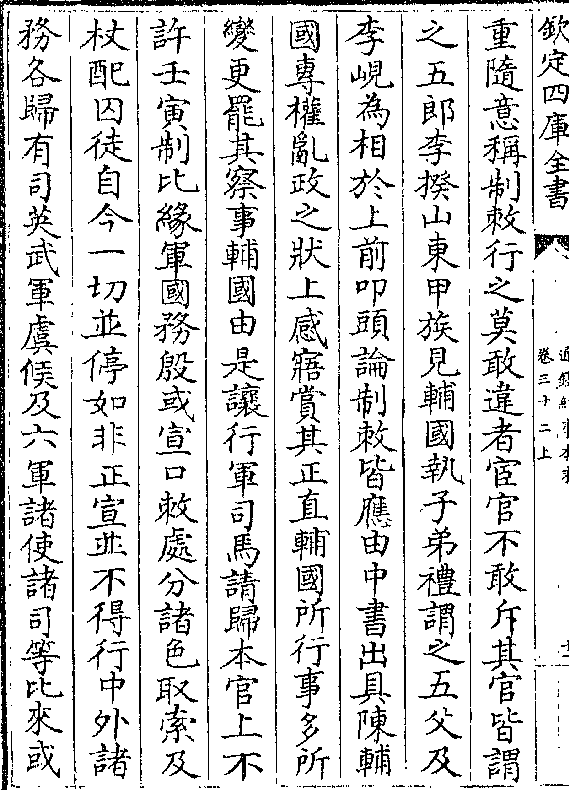 欽定四庫全書
通鑑紀事本末
卷三十二上
重隨意稱制敕行之莫敢違者宦官不敢斥其官皆謂
之五郎李揆山東甲族見輔國執子弟禮謂之五父及
李峴為相於上前叩頭論制敕皆應由中書出具陳輔
國專權亂政之狀上感寤賞其正直輔國所行事多所
變更罷其察事輔國由是讓行軍司馬請歸本官上不
許壬寅制比緣軍國務殷或宣口敕處分諸色取索及
杖配囚徒自今一切並停如非正宣並不得行中外諸
務各歸有司英武軍虞候及六軍諸使諸司等比來或